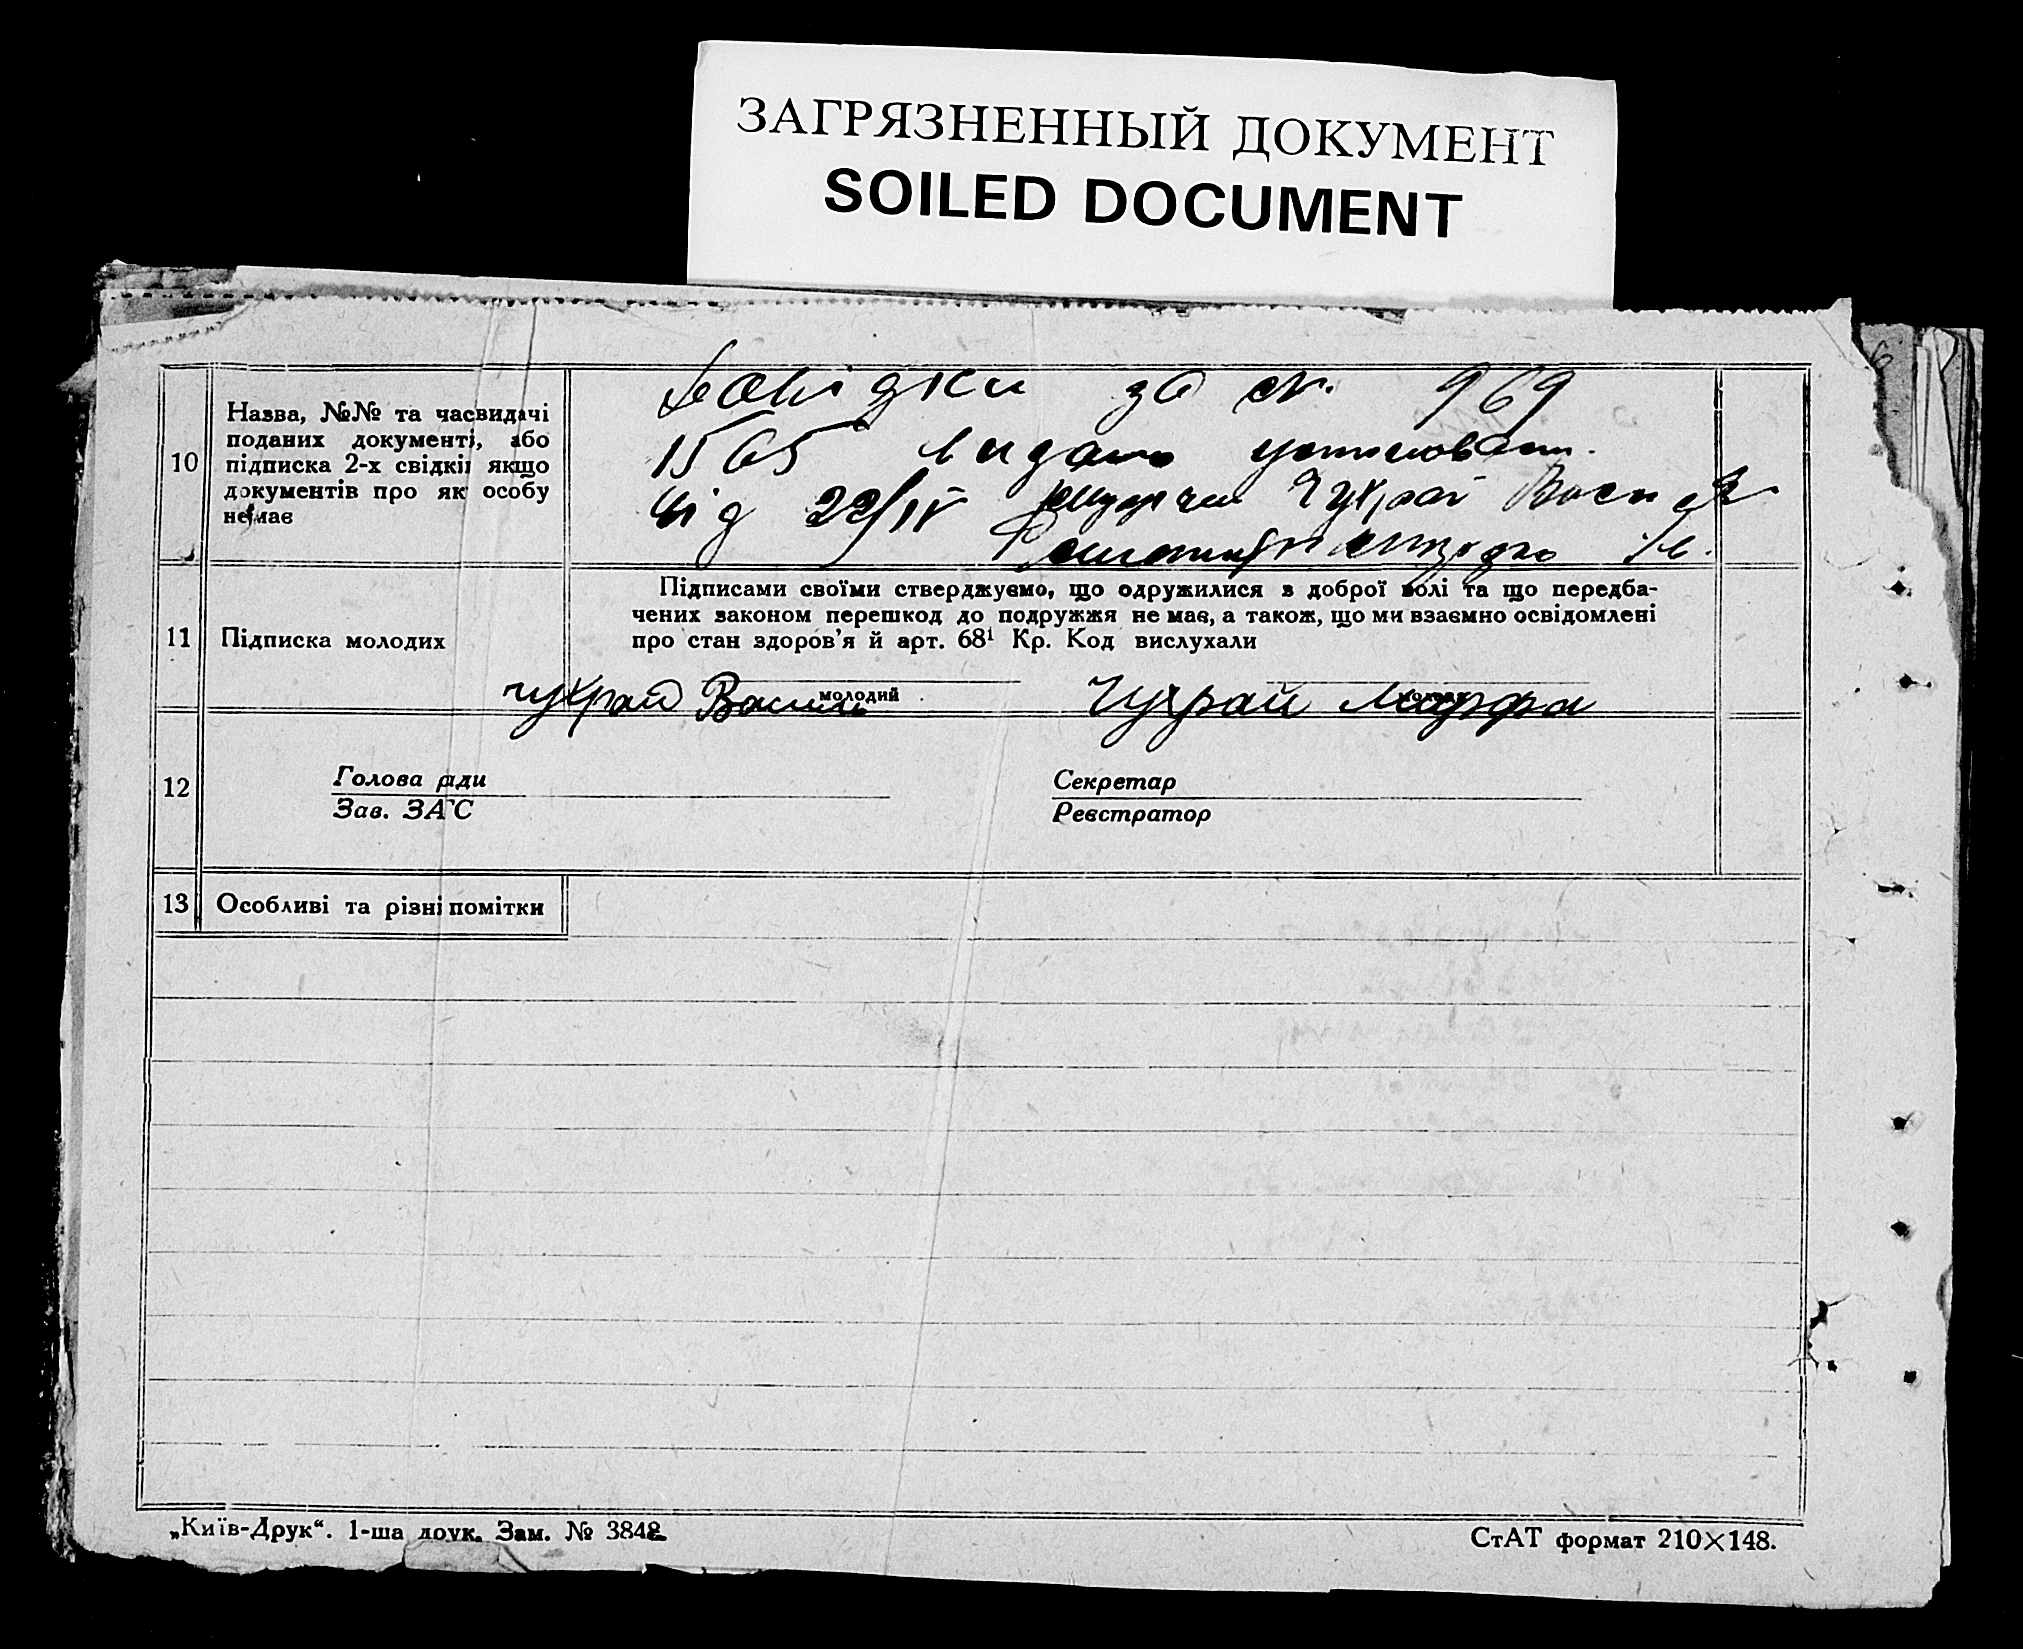 ЗАГРЯЗНЕННЫЙ ДОКУМЕНТ
SOILED DOCUMENT
10
Назва, №№ та часвидачі
поданих документі, або
підписка 2-х свідкіи якщо
документів про як особу
немає
Довідки за № 969
1565 видано
Від 22/IV Чухрай
11
Підписка молодих
Підписами своїми стверджуємо, що одружилися з доброї волі та що передба-
чених законом перешкод до подружжя не має, а також, що ми взаємно освідомлені
про стан здоров'я й арт. 68¹ Кр. Код вислухали
молодий
Чухрай Василь Чухрай Марфа
12
Голова ради
Зав. ЗАГС
Секретар
Реєстратор
13
Особливі та різні помітки
„Київ-Друк“. 1-ша друк. Зам. № 3848
СтАТ формат 210×148.